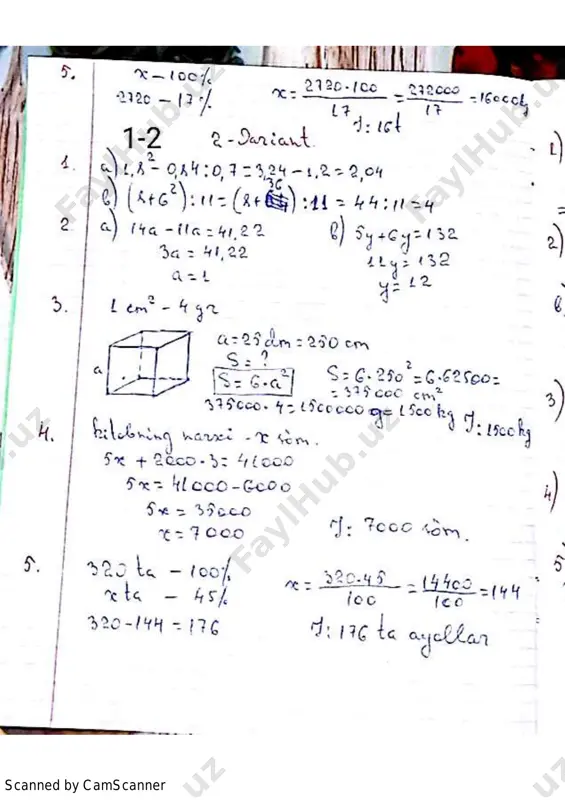 5. x – 100%
2720 – 17%
x = 2720·100/17 = 272000/17 = 16000 kg
J: 16t
1-2 2-Variant.
1. a) 1,8² – 0,84 : 0,7 = 3,24 – 1,2 = 2,04
b) (8+6²) : 11 = (8+36) : 11 = 44 : 11 = 4
2 a) 14a – 11a = 41,22
3a = 41,22
a = 1
b) 5y + 6y = 132
11y = 132
y = 12
3. 1 cm² – 4 gr
a
a = 25 dm = 250 cm
S = ?
S = 6·a²
S = 6·250² = 6·62500 =
= 375000 cm²
375000·4 = 1500000 g = 1500 kg J: 1500 kg
4. kitobning narxi – x so'm.
5x + 2000·3 = 41000
5x = 41000 – 6000
5x = 35000
x = 7000
J: 7000 so'm.
5. 320 ta – 100%
x ta – 45%
x = 320·45/100 = 14400/100 = 144
320 – 144 = 176
J: 176 ta ayollar
1)
2)
b
3)
4)
5
FaylHub.uz
FaylHub.uz
FaylHub.uz
Scanned by CamScanner